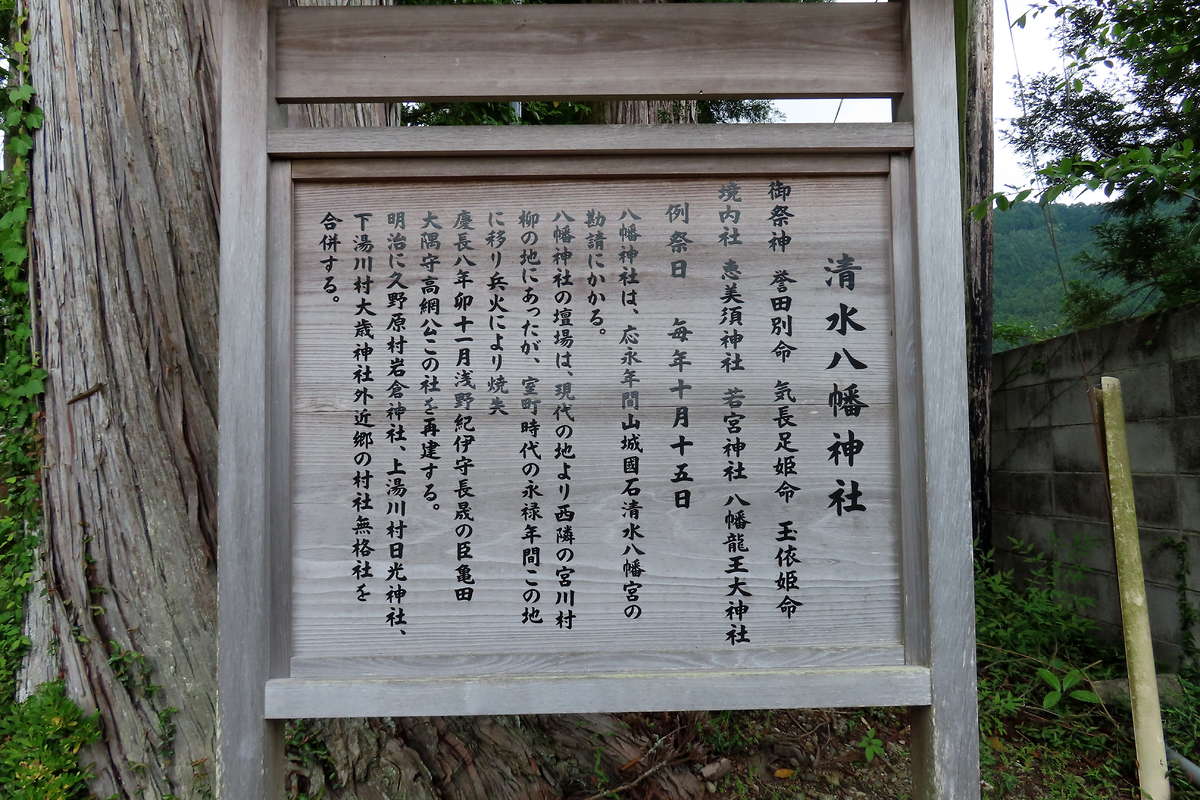 清水八幡神社
御祭神 誉田別命 気長足姫命 玉依姫命
境内社 恵美須神社 若宮神社 八幡龍王大神社
例祭日 毎年十月十五日
八幡神社は、応永年間山城國石清水八幡宮の
勘請にかかる。
八幡神社の壇場は、現代の地より西隣の宮川村
柳の地にあったが、室町時代の永禄年間この地
に移り兵火により焼失
慶長八年卯十一月浅野紀伊守長晟の臣亀田
大隅守高綱公この社を再建する。
明治に久野原村岩倉神社、上湯川村日光神社、
下湯川村大歳神社外近郷の村社無格社を
合併する。